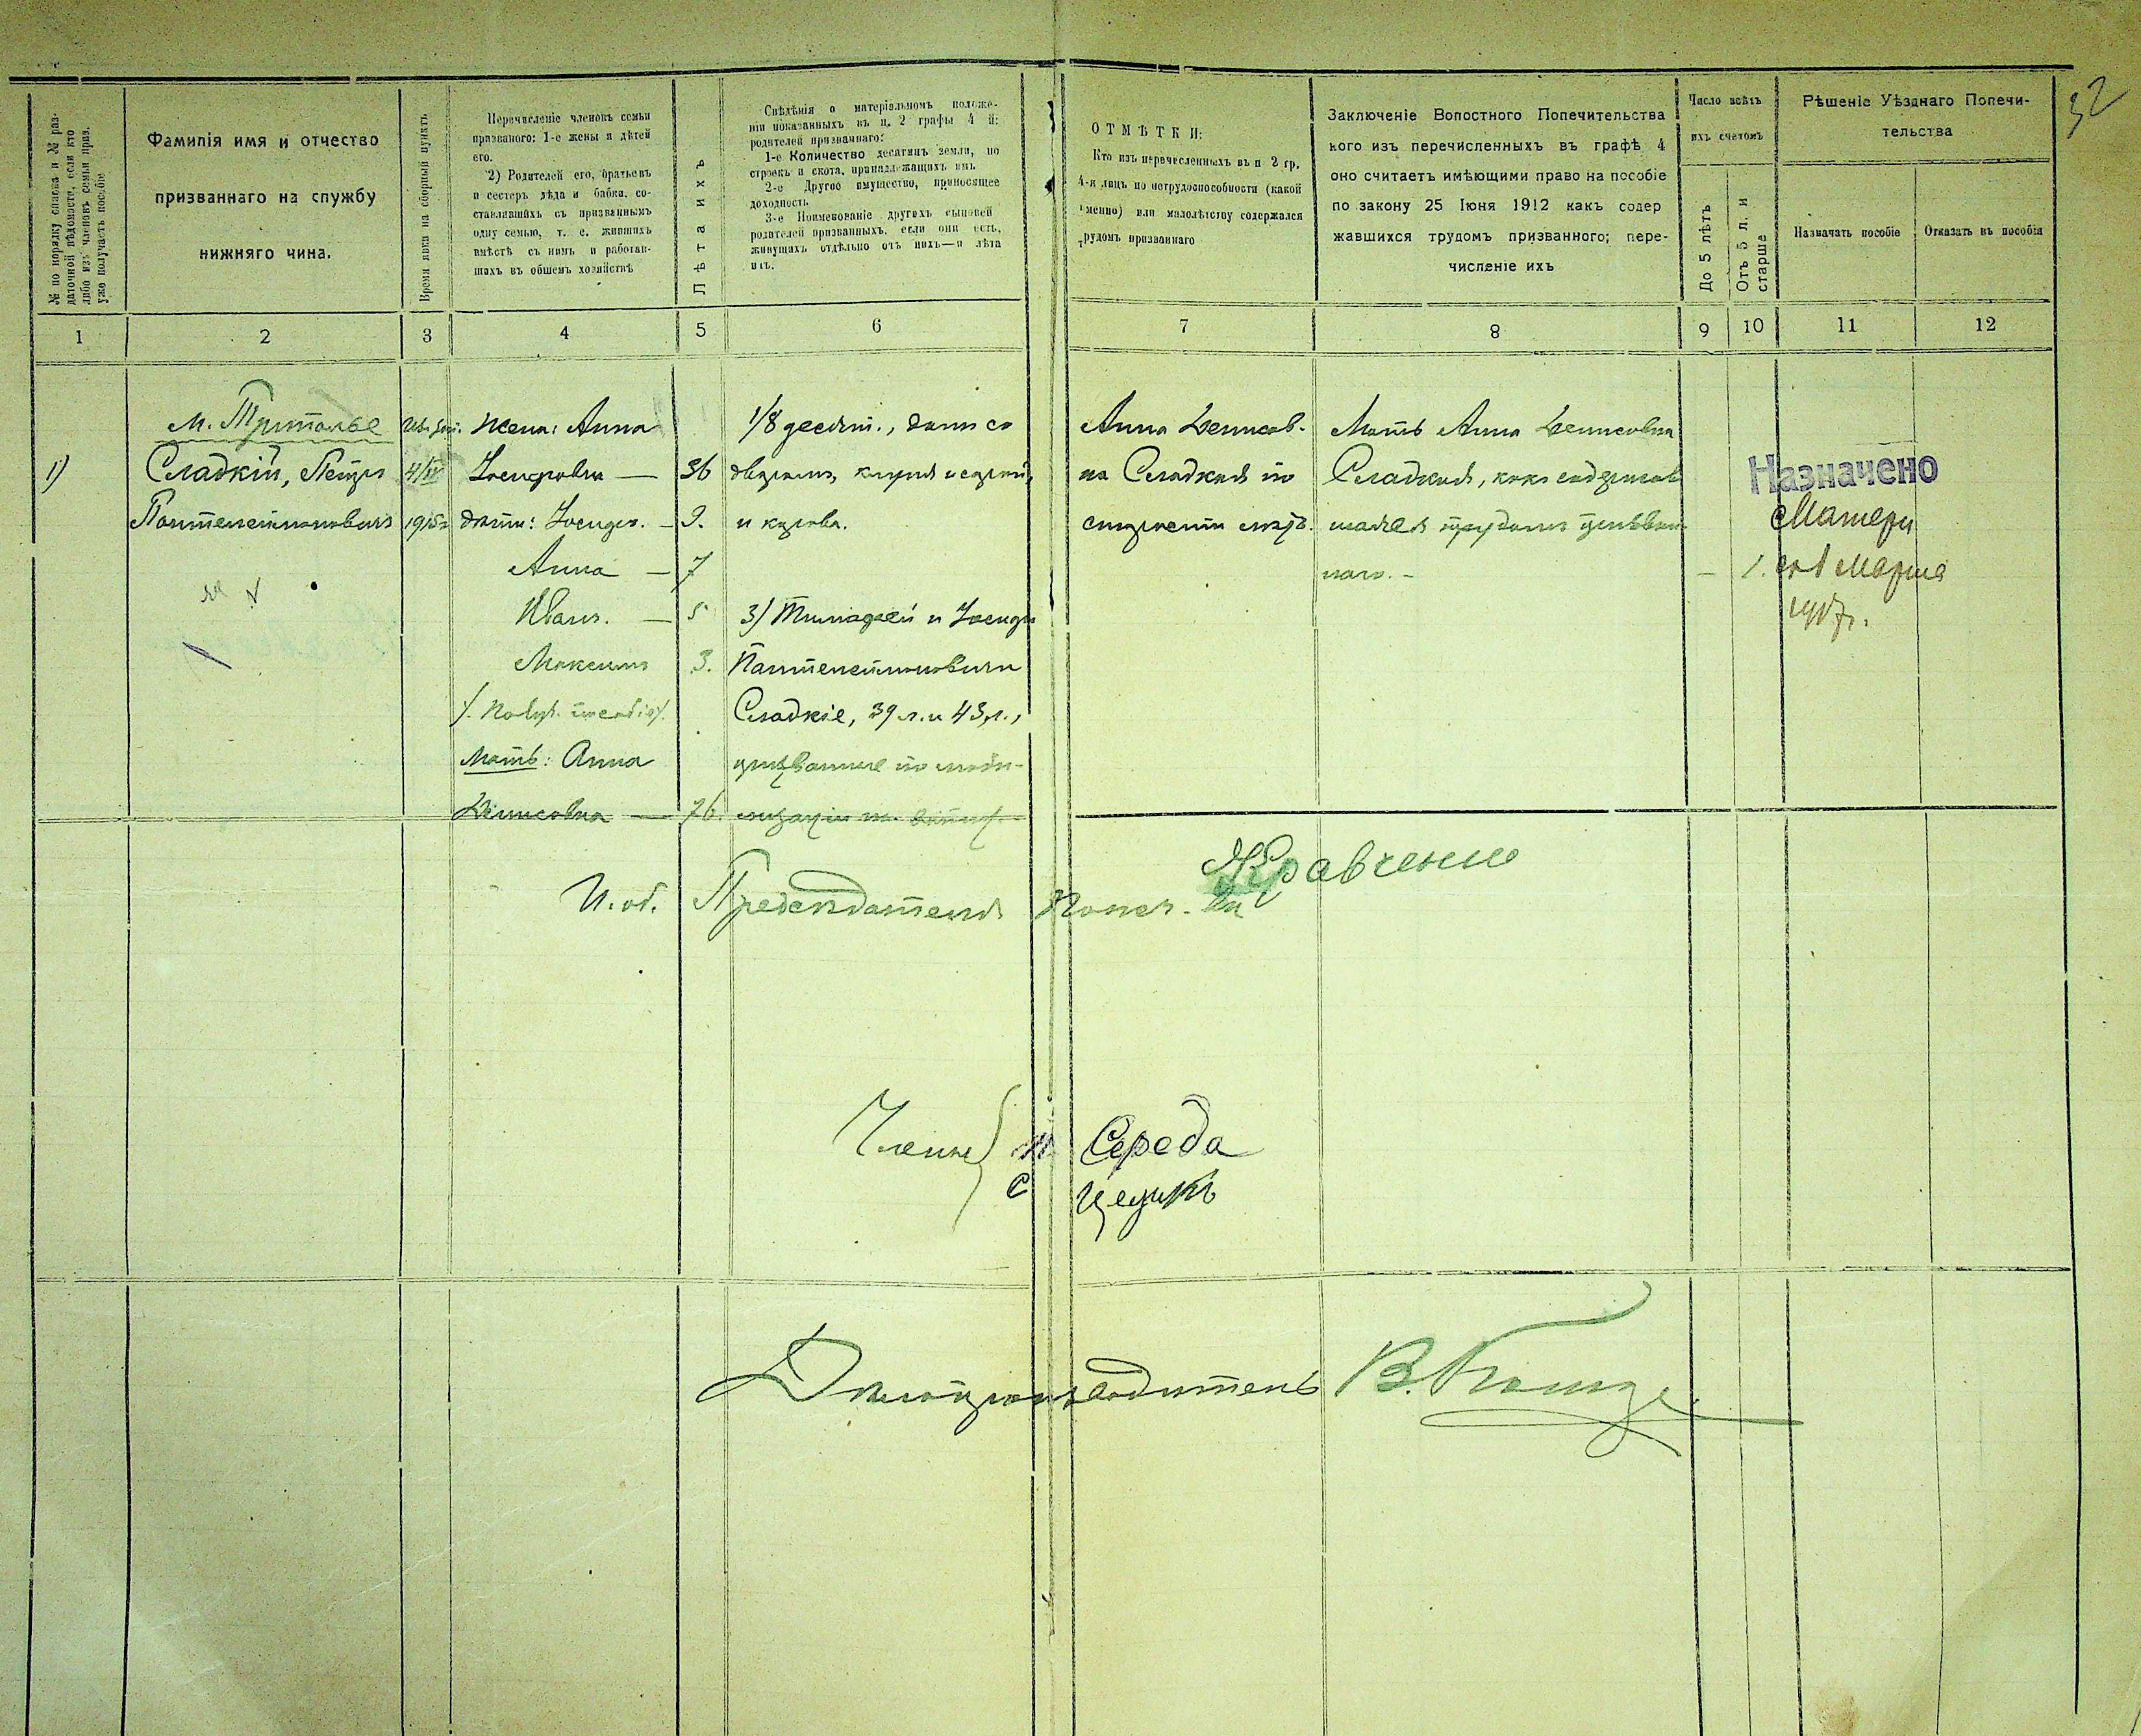 32
№ по порядку списка и № раз-
даточной вѣдомости, если кто
либо изъ членовъ семьи приз.
уже получаетъ пособіе
Фамилія имя и отчество
призваннаго на службу
нижняго чина.
Время явки на сборный пунктъ
Перечисленіе членовъ семьи
призваного: 1-е жены и дѣтей
его.
2) Родителей его, братьевъ
и сестеръ дѣда и бабки, со-
ставлявшихъ съ призваннымъ
одну семью, т. е. жившихъ
вмѣстѣ съ нимъ и работав-
шихъ въ общемъ хозяйствѣ
Лѣта ихъ
Свѣдѣнія о матеріальномъ положе-
ніи показанныхъ въ п. 2 графы 4 й:
родителей призваннаго:
1-е Количество десятинъ земли, по
строекъ и скота, принадлежащихъ имъ
2-е Другое имущество, приносящее
доходность
3-е Поименованіе другихъ сыновей
родителей призванныхъ, если они есть,
живущихъ отдѣльно отъ нихъ—и лѣта
ихъ.
ОТМѢТКИ:
Кто изъ перечисленныхъ въ п 2 гр.
4-я лицъ по нетрудоспособности (какой
именно) или малолѣтству содержался
трудомъ призваннаго
Заключеніе Вопостного Попечительства
кого изъ перечисленныхъ въ графѣ 4
оно считаетъ имѣющими право на пособіе
по закону 25 Іюня 1912 какъ содер
жавшихся трудомъ призванного; пере-
численіе ихъ
Число всѣхъ
ихъ счетомъ
До 5 лѣтъ
Отъ 5 л. и
старше
Рѣшеніе Уѣзднаго Попечи-
тельства
Назначать пособіе
Отказать въ пособія
1 2 3 4 5 6 7 8 9 10 11 12
1)
Сладкій, Петръ
Пантелеймоновичъ
4/IV
1915
Жена: Анна
Іосифовна — 36
дѣти: Іосифъ. — 9.
Анна — 7
Иванъ. — 5
Максимъ 3.
Мать: Анна
Денисовна — 76.
1/8 десят., домъ со
и корова.
3) Тимофей и Іосифъ
Пантелеймоновичи
Сладкіе, 39 л. и 43 л.,
призванные по моби-
Анна Денисов-
на Сладкая по
старости лѣтъ.
Мать Анна Денисовна
Сладкая, какъ содержав
шаяся трудомъ призван-
наго. —
— 1.
Назначено
Матери
съ 1 Марта
И. об. Предсѣдателя Попеч-
Кравченко
Члены
Н. Середа
С
Дѣлопроизводитель В.